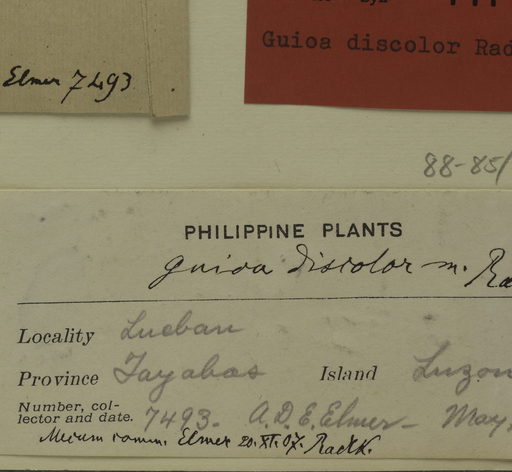 Guioa discolor Rad
Elmer 7493
88-85/
PHILIPPINE PLANTS
Guioa discolor m. Ra
Locality Lucban
Province Tayabas Island Luzon
Number, col-
lector and date. 7493- A.D.E. Elmer- May,
Mecum comm. Elmer 20.XI.07. Radlk.